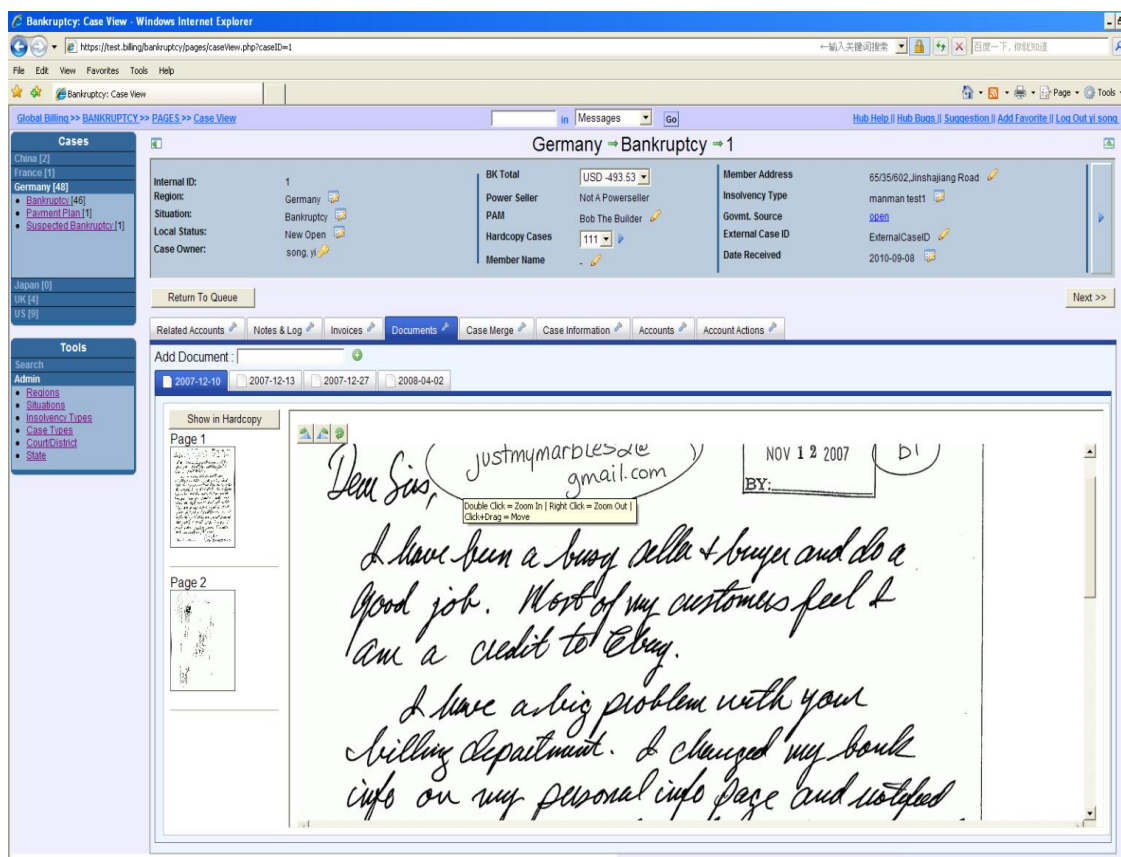 Bankruptcy: Case View - Windows Internet Explorer
https://test.billing/bankruptcy/pages/caseView.php?caseID=1
←输入关键词搜索
百度一下,你就知道
File Edit View Favorites Tools Help
Bankruptcy: Case View
Page Tools
Global Billing >> BANKRUPTCY >> PAGES >> Case View
in Messages Go
Hub Help || Hub Bugs || Suggestion || Add Favorite || Log Out yi song
Cases
China [2]
France [1]
Germany [48]
Bankruptcy [46]
Payment Plan [1]
Suspected Bankruptcy [1]
Japan [0]
UK [4]
US [9]
Tools
Search
Admin
Regions
Situations
Insolvency Types
Case Types
Court/District
State
Germany ⇒ Bankruptcy ⇒ 1
Internal ID: 1
Region: Germany
Situation: Bankruptcy
Local Status: New Open
Case Owner: song, yi
BK Total USD -493.53
Power Seller Not A Powerseller
PAM Bob The Builder
Hardcopy Cases 111
Member Name -
Member Address 65/35/602,Jinshajiang Road
Insolvency Type manman test1
Govmt. Source open
External Case ID ExternalCaseID
Date Received 2010-09-08
Return To Queue
Next >>
Related Accounts Notes & Log Invoices Documents Case Merge Case Information Accounts Account Actions
Add Document :
2007-12-10 2007-12-13 2007-12-27 2008-04-02
Show in Hardcopy
Page 1
Page 2
justmymarbles2@
gmail.com
NOV 12 2007
BY:
Dear Sirs,
Double Click = Zoom In | Right Click = Zoom Out |
Click+Drag = Move
I have been a busy seller + buyer and do a
good job. Most of my customers feel I
am a credit to Ebay.
I have a big problem with your
billing department. I changed my bank
info on my personal info page and notified